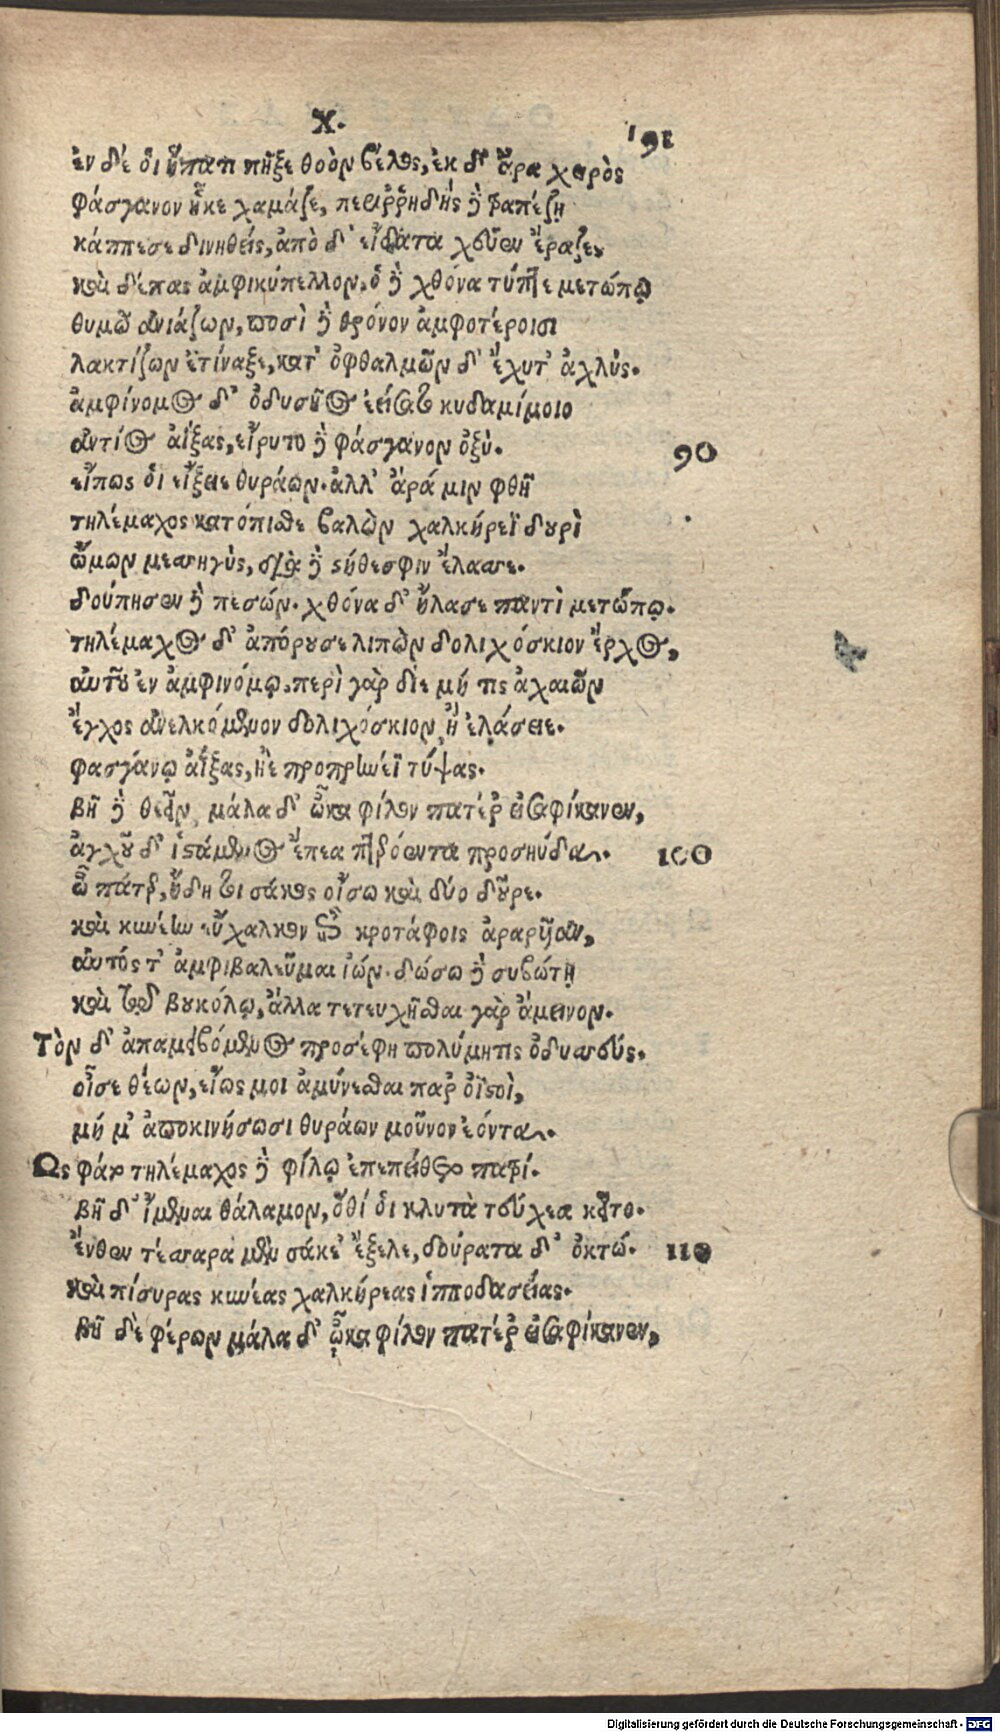 Χ.
191
ἐν δέ ὁι ἥπατι πῆξε θοὸν βέλος, ἐκ δ᾽ ἄρα χειρὸς
φάσγανον ἧκε χαμάζε, περιῤῥηδὴς δὲ τραπέζῃ
κάππεσε δινηθείς, ἀπὸ δ᾽ εἴδατα χεῦεν ἔραζε,
καὶ δέπας ἀμφικύπελλον, ὁ δὲ χθόνα τύπτε μετώπῳ
θυμῷ ἀνιάζων, ποσὶ δὲ θρόνον ἀμφοτέροισι
λακτίζων ἐτίναξε, κατ᾽ ὀφθαλμῶν δ᾽ ἔχυτ᾽ ἀχλύς.
ἀμφίνομος δ᾽ ὀδυσῆος ἐείσατο κυδαλίμοιο
ἀντίος ἀίξας, εἴρυτο δὲ φάσγανον ὀξὺ.
90
εἴπως ὁι εἴξειε θυράων. ἀλλ᾽ ἀρά μιν φθῆ
τηλέμαχος κατόπισθε βαλὼν χαλκήρεϊ δουρὶ
ὤμων μεσσηγὺς, διὰ δὲ στήθεσφιν ἔλασσε.
δούπησεν δὲ πεσών. χθόνα δ᾽ ἤλασε παντὶ μετώπῳ.
τηλέμαχος δ᾽ ἀπόρουσε λιπὼν δολιχόσκιον ἔγχος,
αὐτοῦ ἐν ἀμφινόμῳ. περὶ γὰρ δίε μή τις ἀχαιῶν
ἔγχος ἀνελκόμενον δολιχόσκιον, ἢ ἐλάσειε.
φασγάνῳ ἀΐξας, ἠὲ προπρηνέϊ τύψας.
βῆ δὲ θέειν, μάλα δ᾽ ὦκα φίλον πατέρ εἰσαφίκανεν,
ἀγχοῦ δ᾽ ἱστάμενος ἔπεα πτερόεντα προσηύδα.
100
ὦ πάτερ, ἤδη τοι σάκος οἴσω καὶ δύο δοῦρε.
καὶ κυνέην εὔχαλκον ἐπὶ κροτάφοις ἀραρυῖαν,
αὐτός τ᾽ ἀμφιβαλεῦμαι ἰών. δώσω δὲ συβώτῃ
καὶ τῷδ βουκόλῳ, ἄλλα τετευχῆσθαι γὰρ ἄμεινον.
Τὸν δ᾽ ἀπαμειβόμενος προσέφη πολύμητις ὀδυσσεύς.
οἶσε θέων, εἵως μοι ἀμύνεσθαι παρ ὀϊστοὶ,
μή μ᾽ ἀποκινήσωσι θυράων μοῦνον ἐόντα.
Ως φάτ τηλέμαχος δὲ φίλῳ ἐπεπείθετο πατρί.
βῆ δ᾽ ἴμεναι θάλαμον, ὅθί ὁι κλυτὰ τεύχεα κεῖτο.
ἔνθεν τέσσαρα μὲν σάκε᾽ ἔξελε, δούρατα δ᾽ ὀκτώ.
110
καὶ πίσυρας κυνέας χαλκήρεας ἱπποδασείας.
βῆ δὲ φέρων μάλα δ᾽ ὦκα φίλον πατέρ εἰσαφίκανεν,
Digitalisierung gefördert durch die Deutsche Forschungsgemeinschaft - DFG